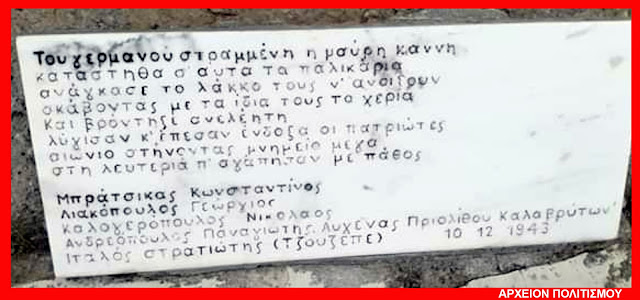 Του γερμανού στραμμένη η μαύρη κάννη
κατάστηθα σ' αυτά τα παλικάρια
ανάγκασε το λάκκο τους ν' ανοίξουν
σκάβοντας με τα ίδια τους τα χέρια
Και βρόντηξε ανελέητη
λύγισαν κ' έπεσαν ένδοξα οι πατριώτες
αιώνιο στήνοντας μνημείο μέγα
στη λευτεριά π' αγάπησαν με πάθος
Μπράτσικας Κωνσταντίνος
Λιακόπουλος Γεώργιος
Καλογερόπουλος Νικόλαος
Ανδρεόπουλος Παναγιώτης. Αυχένας Πριολίθου Καλαβρύτων
Ιταλός στρατιώτης (Τζουζέπε) 10 12 1943
ΑΡΧΕΙΟΝ ΠΟΛΙΤΙΣΜΟΥ